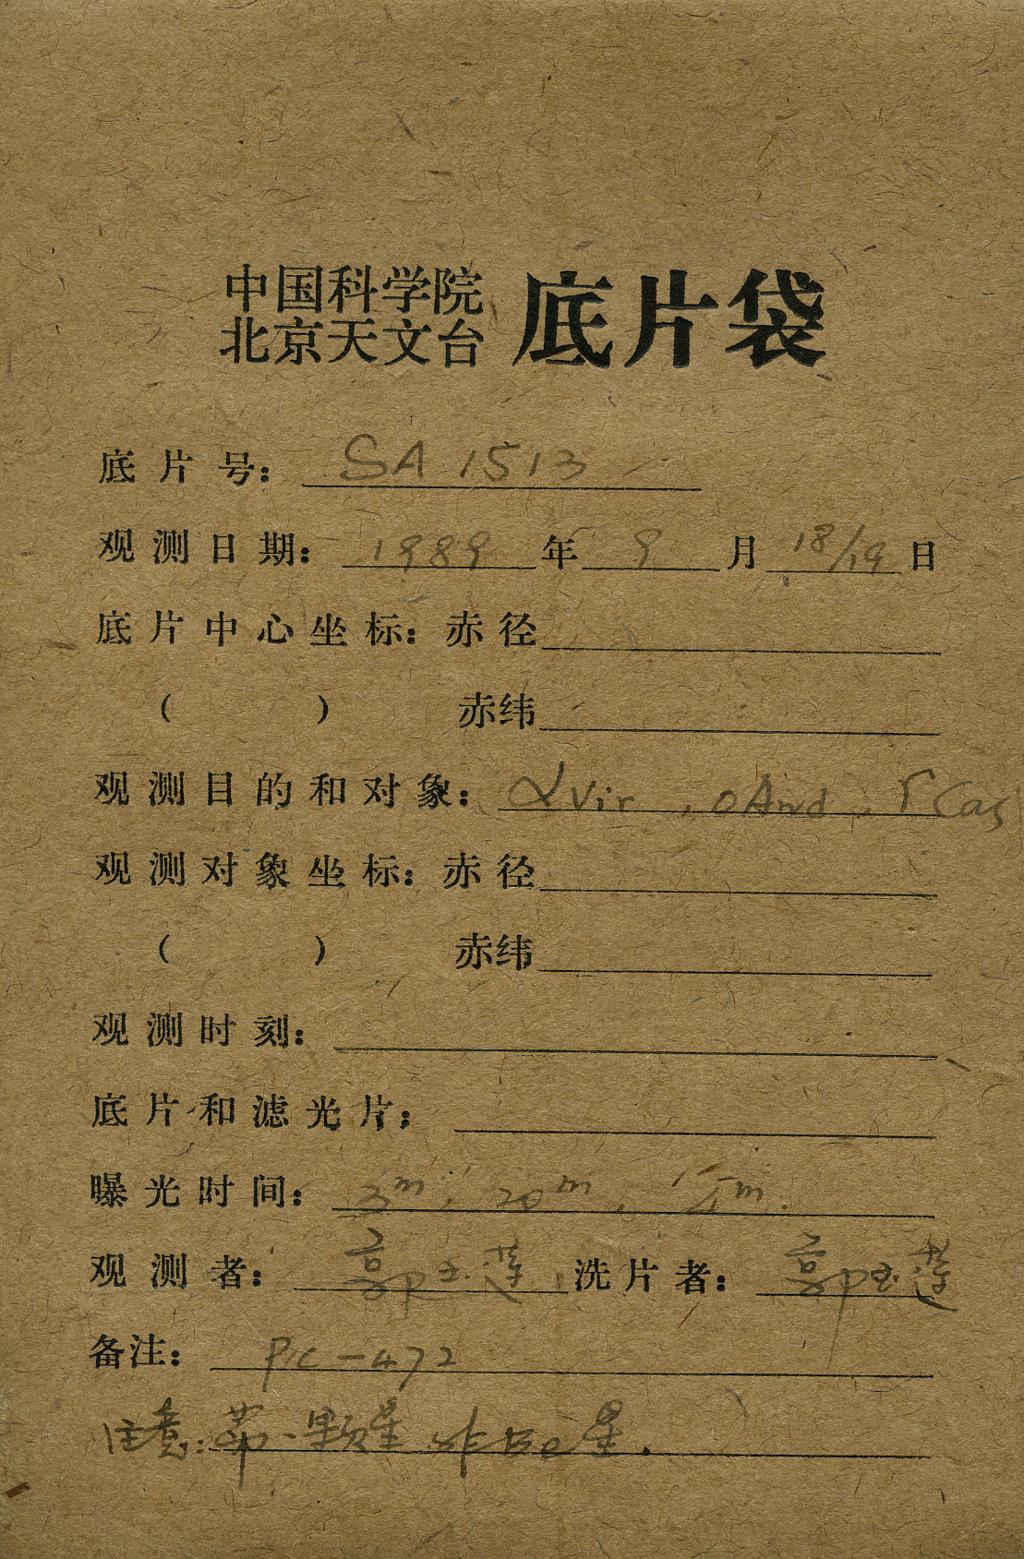 中国科学院
北京天文台 底片袋
底片号: SA 1513
观测日期: 1989 年 9 月 18/19 日
底片中心坐标: 赤径
( ) 赤纬
观测目的和对象: αVir , οAnd , γ Cas
观测对象坐标: 赤径
( ) 赤纬
观测时刻:
底片和滤光片:
曝光时间: 3m, 20m,
观测者: 郭玉莲 洗片者: 郭玉莲
备注: PC-472
注意: 第一颗星 非Be星.